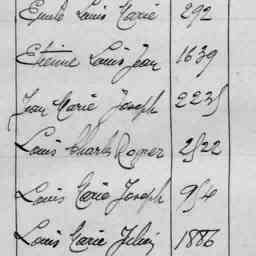 Emile Louis Marie 292
Etienne Louis Jean 1639
Jean Marie Joseph 2235
Louis Charles Roger 2522
Louis Marie Joseph 954
Louis Marie Julien 1886